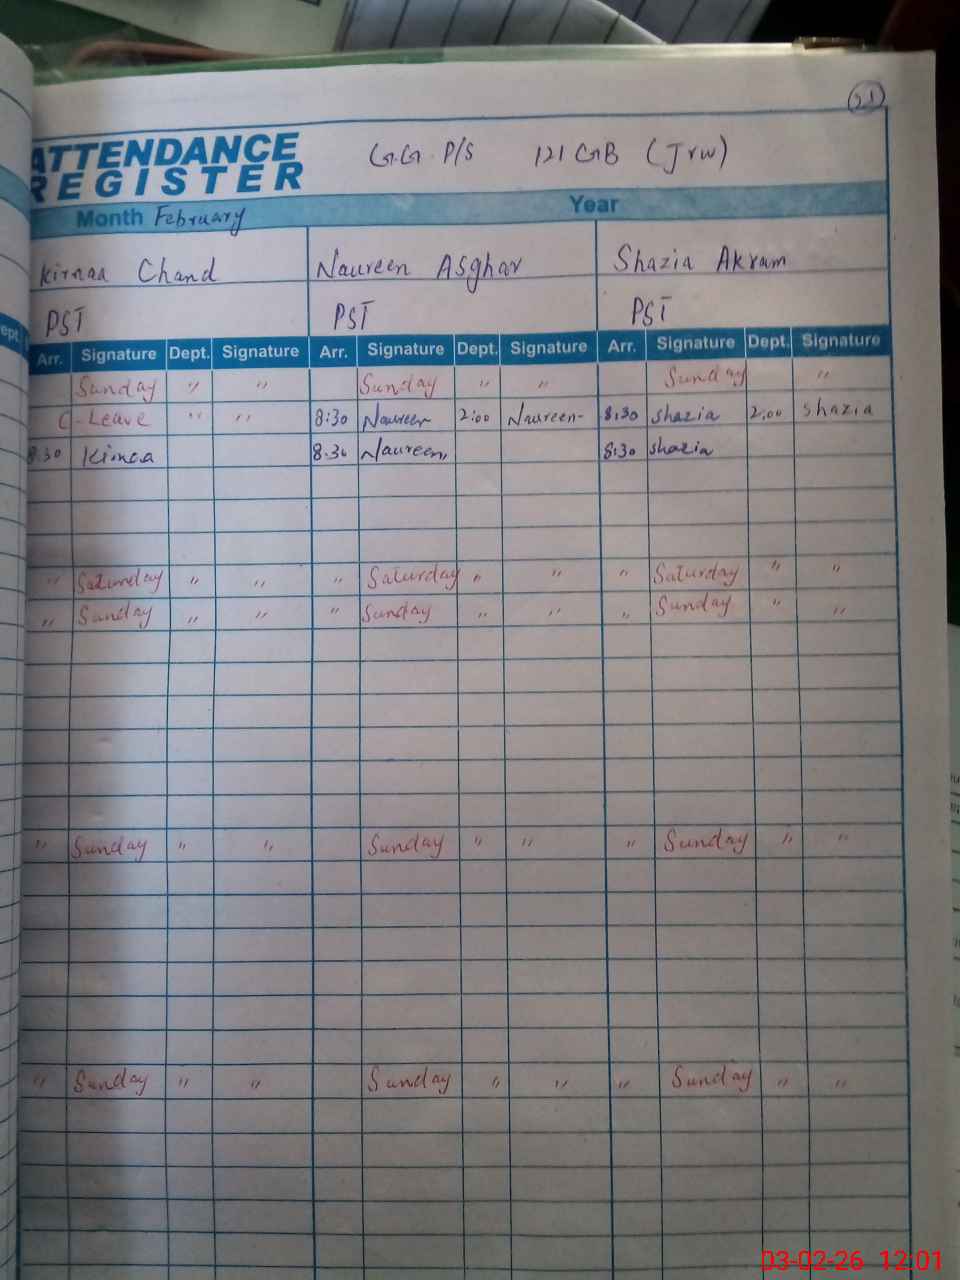 21
ATTENDANCE
REGISTER
G.G. P/S 121 GB (Jrw)
Month February Year
Kirnaa Chand Naureen Asghar Shazia Akram
PST PST PST
ept.
Arr. Signature Dept. Signature Arr. Signature Dept. Signature Arr. Signature Dept. Signature
Sunday " " Sunday " " Sunday "
C-Leave " " 8:30 Naureen 2:00 Naureen 8:30 Shazia 2:00 Shazia
8:30 Kirnaa 8:30 Naureen 8:30 Shazia
" Saturday " " " Saturday " " " Saturday " "
" Sunday " " " Sunday " " " Sunday " "
" Sunday " " Sunday " " " Sunday " "
" Sunday " " Sunday " " " Sunday " "
03-02-26 12:01